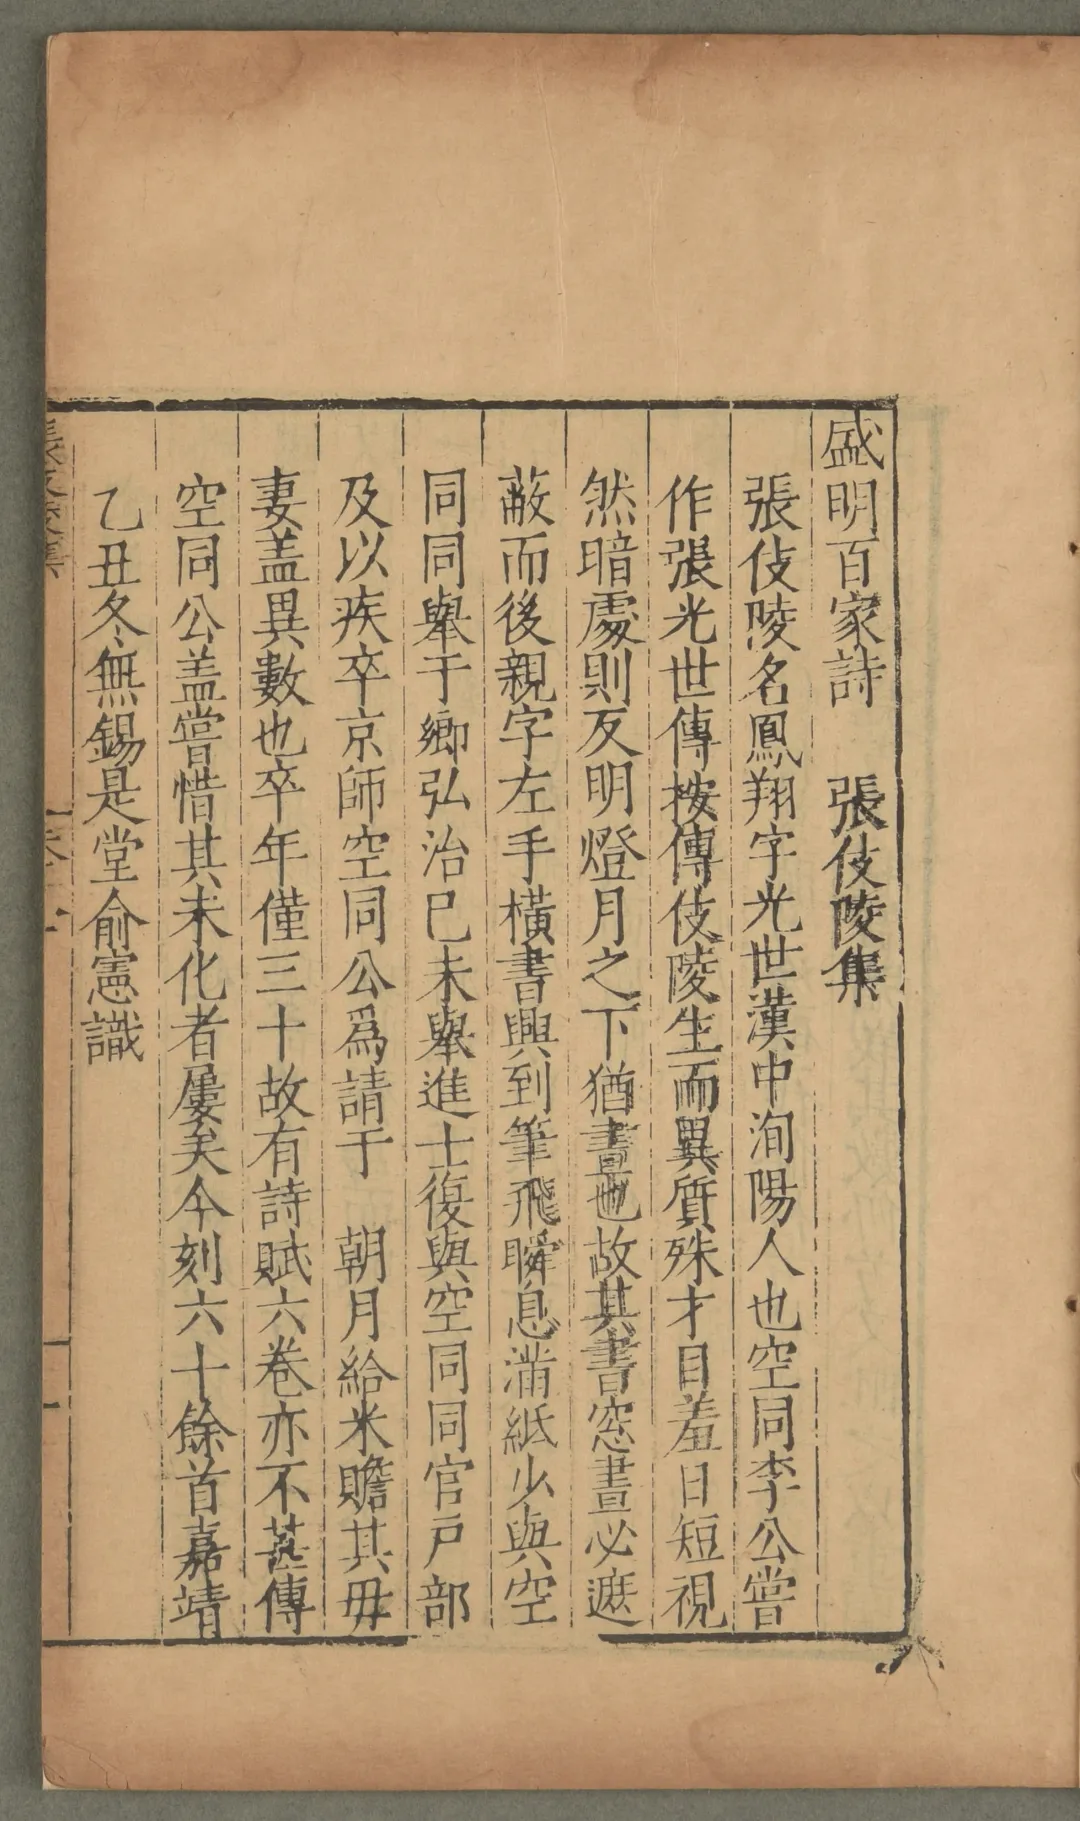 盛明百家詩　張伎陵集
張伎陵名鳳翔字光世漢中洵陽人也空同李公嘗
作張光世傳按傳伎陵生而異質殊才目羞日短視
然暗處則反明燈月之下猶晝也故其書窓晝必遮
蔽而後親字左手橫書興到筆飛瞬息滿紙少與空
同同舉于鄉弘治己未舉進士復與空同同官戶部
及以疾卒京師空同公爲請于　朝月給米贍其毋
妻盖異數也卒年僅三十故有詩賦六巻亦不甚傳
空同公盖嘗惜其未化者屢矣今刻六十餘首嘉靖
乙丑冬無錫是堂俞憲識